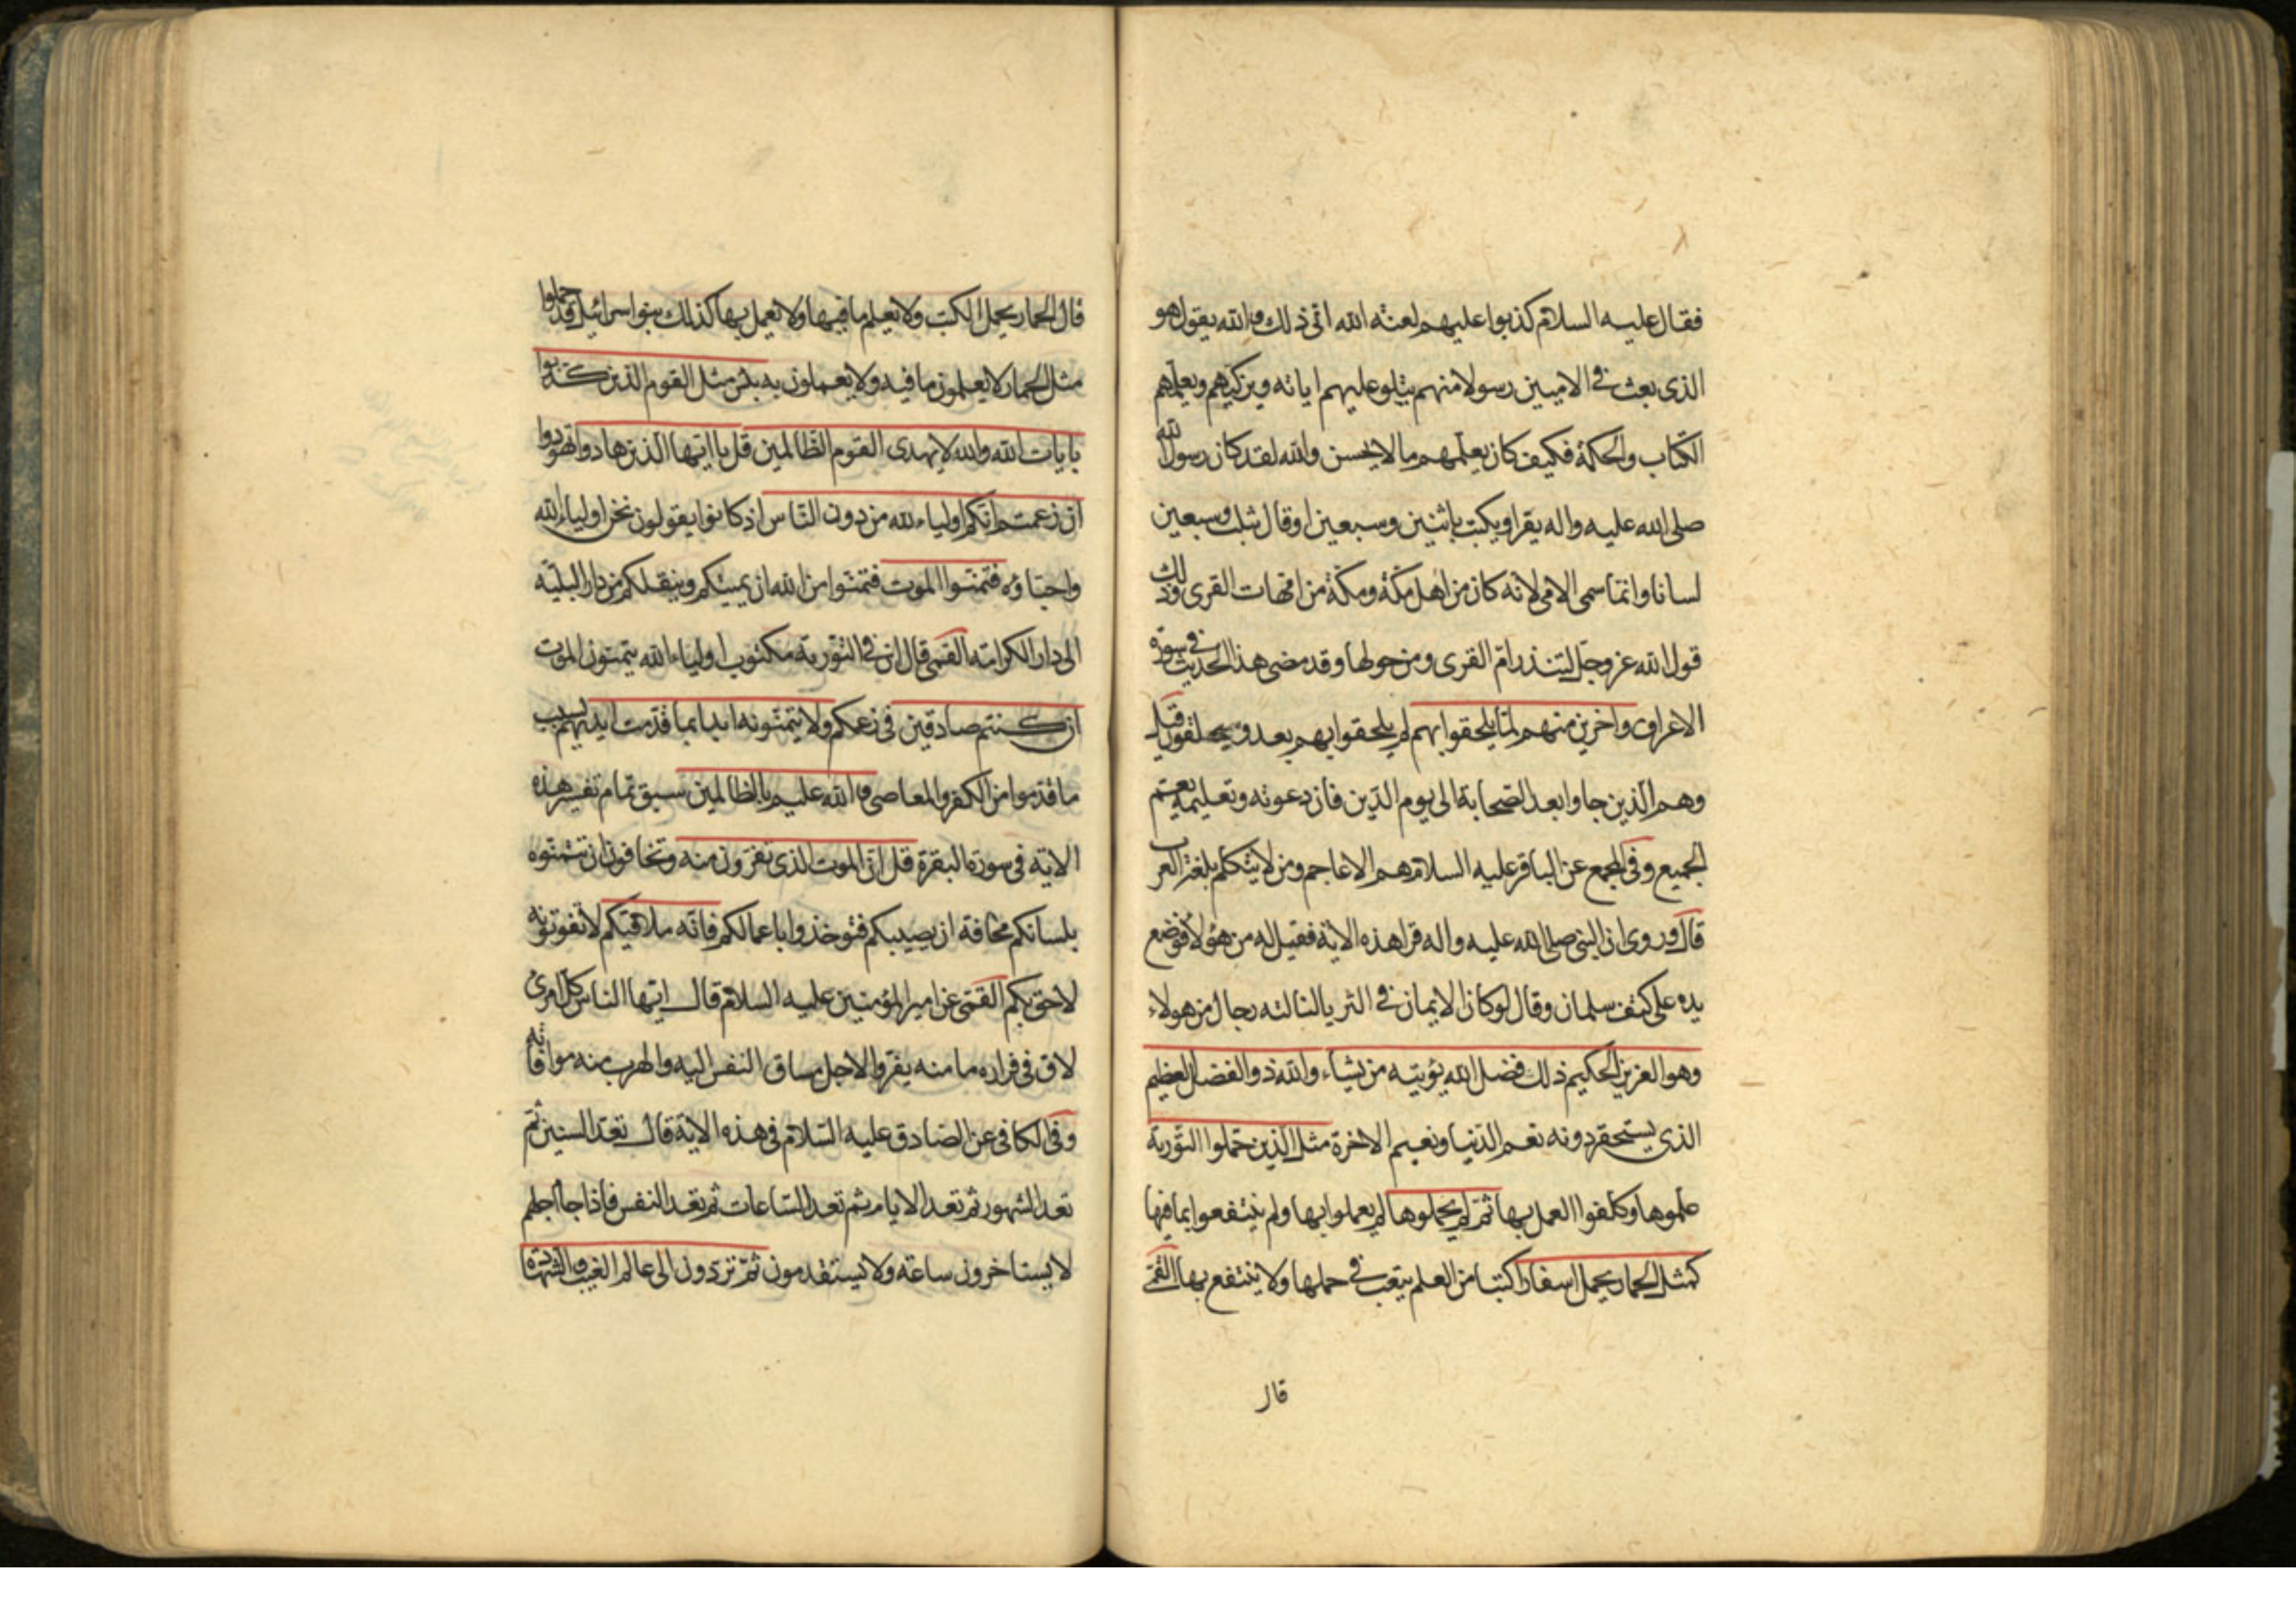 فقال عليه السلام كذبوا عليهم لعنة الله انى ذلك والله يقول هو
الذى بعث فى الاميين رسولا منهم يتلو عليهم اياته ويزكيهم ويعلمهم
الكتاب والحكمة فكيف كان يعلمهم ما لا يحسن والله لقد كان رسول الله
صلى الله عليه واله يقرا ويكتب باثنين وسبعين او قال بثلث وسبعين
لسانا وانما سمى الامى لانه كان من اهل مكة ومكة من امهات القرى وذلك
قول الله عز وجل لتنذر ام القرى ومن حولها وقد مضى هذا الحديث فى سورة
الاعراف واخرين منهم لما يلحقوا بهم لم يلحقوا بهم بعد و قيل
وهم الذين جاوا بعد الصحابة الى يوم الدين فان دعوته وتعليمه يعم
الجميع وفى المجمع عن الباقر عليه السلام هم الاعاجم ومن لا يتكلم بلغة العرب
قال وروى ان النبى صلى الله عليه واله قرا هذه الاية فقيل له من هؤلاء فوضع
يده على كتف سلمان وقال لو كان الايمان فى الثريا لنالته رجال من هولاء
وهو العزيز الحكيم ذلك فضل الله يؤتيه من يشاء والله ذو الفضل العظيم
الذى يستحقر دونه نعم الدنيا ونعيم الاخرة مثل الذين حملوا التورية
علموها وكلفوا العمل بها ثم لم يحملوها لم يعملوا بها ولم ينتفعوا بما فيها
كمثل الحمار يحمل اسفارا كتبا من العلم يتعب فى حملها ولا ينتفع بها القمى
قال
قال الحمار يحمل الكتب ولا يعلم ما فيها ولا يعمل بها كذلك بنو اسرائيل قد حملوا
مثل الحمار لا يعلمون ما فيه ولا يعملون به بئس مثل القوم الذين كذبوا
بايات الله والله لا يهدى القوم الظالمين قل يا ايها الذين هادوا تهودوا
ان زعمتم انكم اولياء لله من دون الناس اذ كانوا يقولون نحن اولياء الله
واحباؤه فتمنوا الموت فتمنوا من الله ان يميتكم وينقلكم من دار البلية
الى دار الكرامة القمى قال ان فى التورية مكتوب اولياء الله يتمنون الموت
ان كنتم صادقين فى زعمكم ولا يتمنونه ابدا بما قدمت ايديهم بسبب
ما قدموا من الكفر والمعاصى والله عليم بالظالمين سبق تمام تفسير هذه
الاية فى سورة البقرة قل ان الموت الذى تفرون منه وتخافون ان تتمنوه
بلسانكم مخافة ان يصيبكم فتوخذوا باعمالكم فانه ملاقيكم لا تفوتونه
لاحق بكم القمى عن امير المؤمنين عليه السلام قال ايها الناس كل امرئ
لاق فى فراره ما منه يفر والاجل مساق النفس اليه والهرب منه موافاته
وفى الكافى عن الصادق عليه السلام فى هذه الاية قال تعد السنين ثم
تعد الشهور ثم تعد الايام ثم تعد الساعات ثم تعد النفس فاذا جا اجلهم
لا يستاخرون ساعة ولا يستقدمون ثم تردون الى عالم الغيب والشهادة